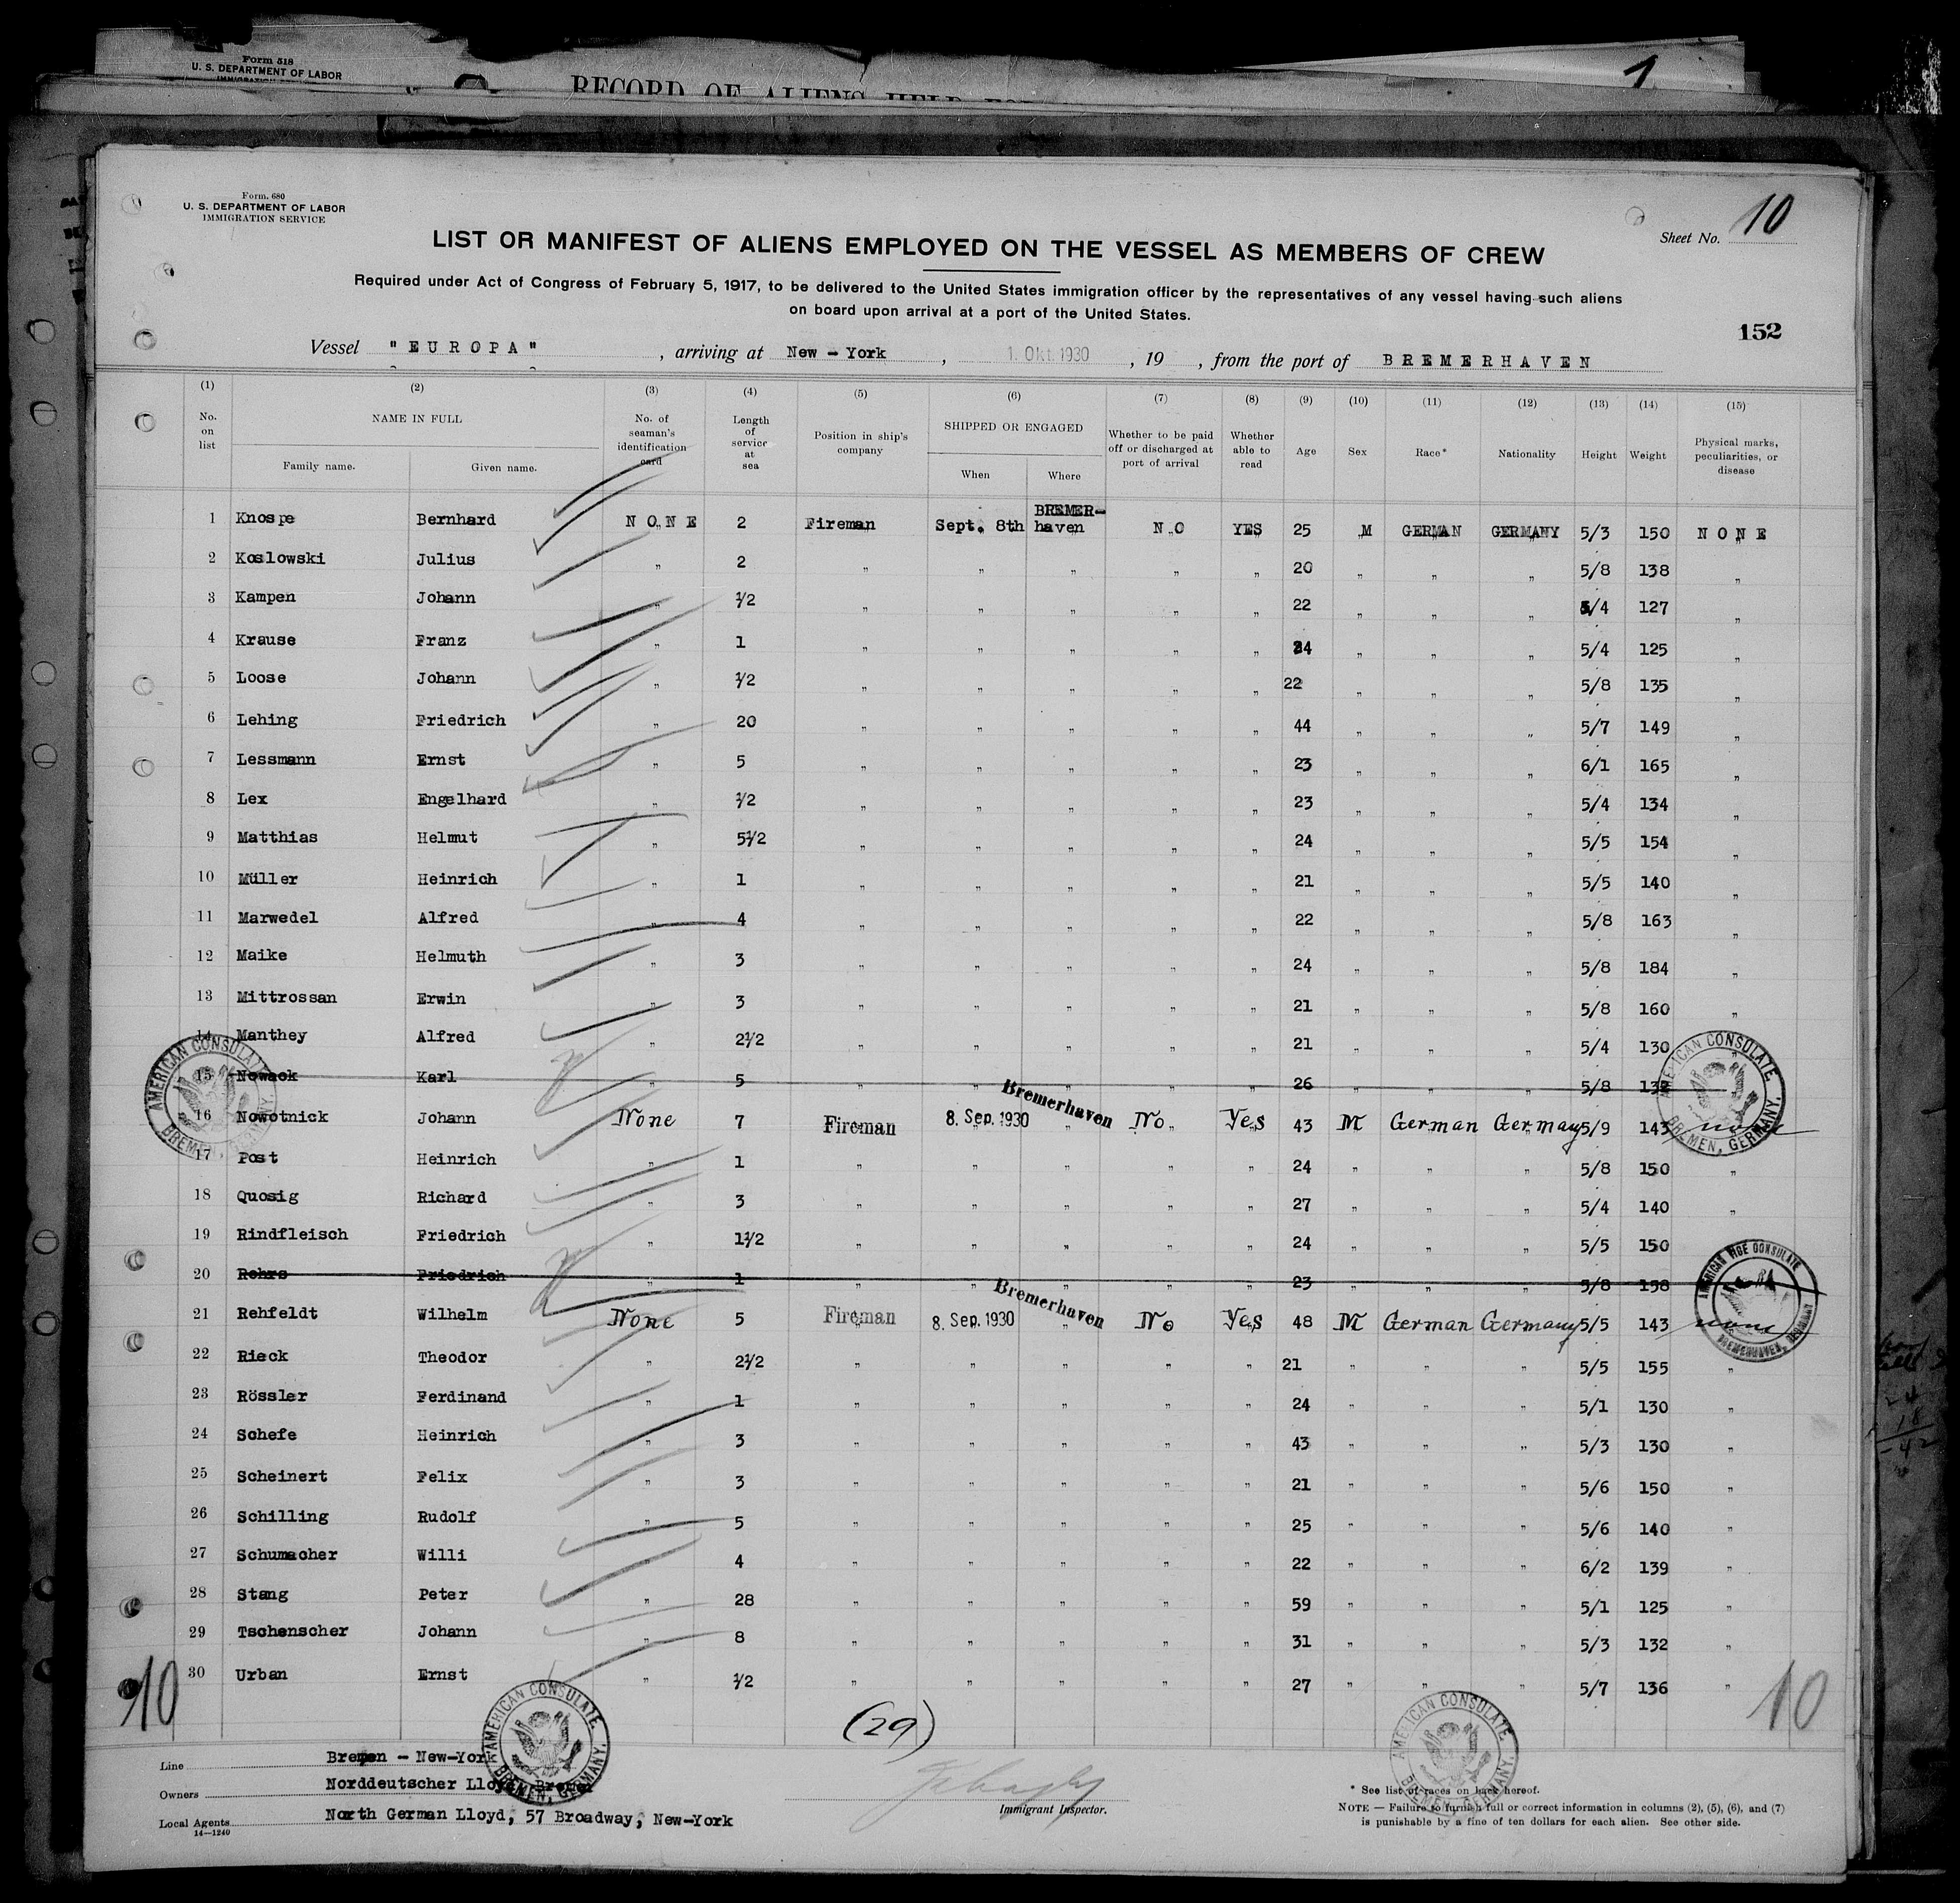 Form 518
U. S. DEPARTMENT OF LABOR
IMMIGRATION SERVICE
RECORD OF ALIENS HELD
1
Form 680
U. S. DEPARTMENT OF LABOR
IMMIGRATION SERVICE
Sheet No. 10
LIST OR MANIFEST OF ALIENS EMPLOYED ON THE VESSEL AS MEMBERS OF CREW
Required under Act of Congress of February 5, 1917, to be delivered to the United States immigration officer by the representatives of any vessel having such aliens
on board upon arrival at a port of the United States.
152
Vessel "EUROPA", arriving at New - York, 1. Okt. 1930, 19 , from the port of BREMERHAVEN
(1) (2) (3) (4) (5) (6) (7) (8) (9) (10) (11) (12) (13) (14) (15)
No. on list
NAME IN FULL
Family name. Given name.
No. of seaman's identification card
Length of service at sea
Position in ship's company
SHIPPED OR ENGAGED
When Where
Whether to be paid off or discharged at port of arrival
Whether able to read
Age Sex Race* Nationality Height Weight
Physical marks, peculiarities, or disease
1 Knospe Bernhard NONE 2 Fireman Sept. 8th BREMER-haven NO YES 25 M GERMAN GERMANY 5/3 150 NONE
2 Koslowski Julius " 2 " " " " " 20 " " " 5/8 138 "
3 Kampen Johann " 1/2 " " " " " 22 " " " 5/4 127 "
4 Krause Franz " 1 " " " " " 24 " " " 5/4 125 "
5 Loose Johann " 1/2 " " " " " 22 " " " 5/8 135 "
6 Lehing Friedrich " 20 " " " " " 44 " " " 5/7 149 "
7 Lessmann Ernst " 5 " " " " " 23 " " " 6/1 165 "
8 Lex Engelhard " 1/2 " " " " " 23 " " " 5/4 134 "
9 Matthias Helmut " 5 1/2 " " " " " 24 " " " 5/5 154 "
10 Müller Heinrich " 1 " " " " " 21 " " " 5/5 140 "
11 Marwedel Alfred " 4 " " " " " 22 " " " 5/8 163 "
12 Maike Helmuth " 3 " " " " " 24 " " " 5/8 184 "
13 Mittrossan Erwin " 3 " " " " " 21 " " " 5/8 160 "
14 Manthey Alfred " 2 1/2 " " " " " 21 " " " 5/4 130 "
15 Nowack Karl " 5 " " " " " 26 " " " 5/8
16 Nowotnick Johann None 7 Fireman 8. Sep. 1930 Bremerhaven No Yes 43 M German Germany 5/9 143 none
17 Post Heinrich " 1 " " " " " 24 " " " 5/8 150 "
18 Quosig Richard " 3 " " " " " 27 " " " 5/4 140 "
19 Rindfleisch Friedrich " 1 1/2 " " " " " 24 " " " 5/5 150 "
20 Rohrs Friedrich " 1 " " " " " 23 " " " 5/8 158
21 Rehfeldt Wilhelm None 5 Fireman 8. Sep. 1930 Bremerhaven No Yes 48 M German Germany 5/5 143 none
22 Rieck Theodor " 2 1/2 " " " " " 21 " " " 5/5 155 "
23 Rössler Ferdinand " 1 " " " " " 24 " " " 5/1 130 "
24 Schefe Heinrich " 3 " " " " " 43 " " " 5/3 130 "
25 Scheinert Felix " 3 " " " " " 21 " " " 5/6 150 "
26 Schilling Rudolf " 5 " " " " " 25 " " " 5/6 140 "
27 Schumacher Willi " 4 " " " " " 22 " " " 6/2 139 "
28 Stang Peter " 28 " " " " " 59 " " " 5/1 125 "
29 Tschenscher Johann " 8 " " " " " 31 " " " 5/3 132 "
30 Urban Ernst " 1/2 " " " " " 27 " " " 5/7 136 "
AMERICAN CONSULATE BREMEN, GERMANY.
AMERICAN CONSULATE BREMEN, GERMANY.
AMERICAN VICE CONSULATE BREMERHAVEN, GERMANY
10 (29) 10
AMERICAN CONSULATE, BREMEN, GERMANY.
AMERICAN CONSULATE, BREMEN, GERMANY.
Line Bremen - New-York
Owners Norddeutscher Lloyd, Bremen
Local Agents North German Lloyd, 57 Broadway, New-York
14-1240
Immigrant Inspector.
* See list of races on back hereof.
NOTE — Failure to furnish full or correct information in columns (2), (5), (6), and (7)
is punishable by a fine of ten dollars for each alien. See other side.